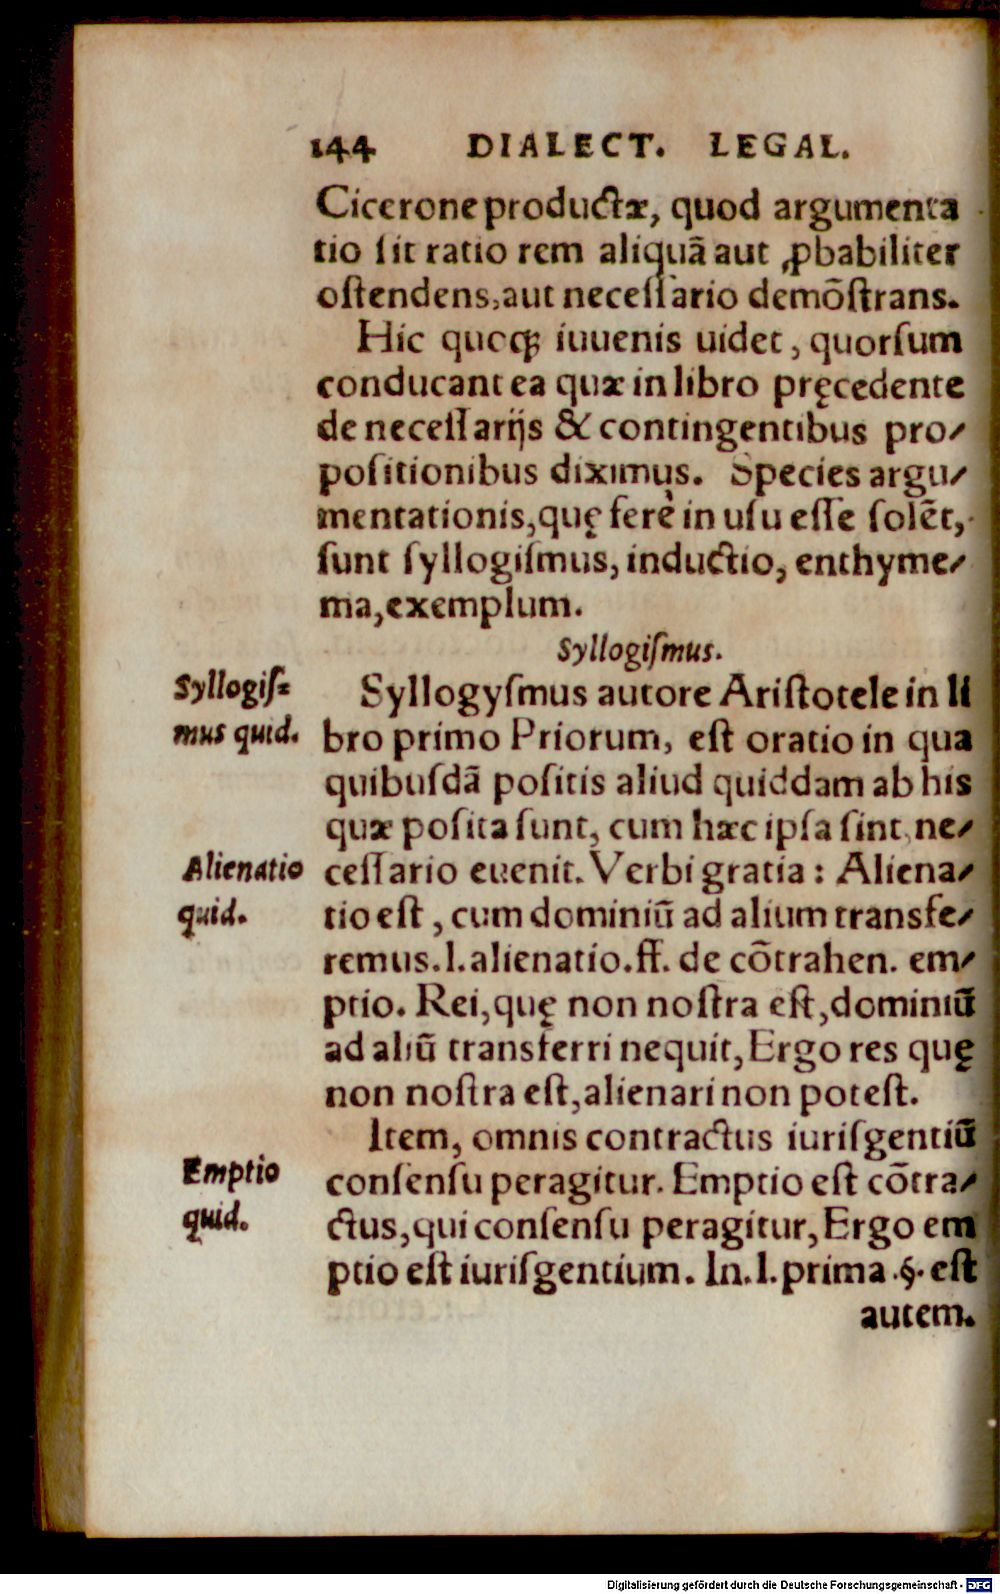 144 DIALECT. LEGAL.
Cicerone productæ, quod argumenta
tio ſit ratio rem aliquã aut ꝓbabiliter
oſtendens, aut neceſſario demõſtrans.
Hic quoqꝫ iuuenis uidet, quorſum
conducant ea quæ in libro pręcedente
de neceſſarijs & contingentibus pro⸗
poſitionibus diximus. Species argu⸗
mentationis, quę ferè in uſu eſſe ſolẽt,
ſunt ſyllogiſmus, inductio, enthyme⸗
ma, exemplum.
Syllogiſmus.
Syllogiſ⸗
mus quid.
Syllogyſmus autore Ariſtotele in li
bro primo Priorum, eſt oratio in qua
quibuſdã poſitis aliud quiddam ab his
quæ poſita ſunt, cum hæc ipſa ſint, ne⸗
Alienatio
quid.
ceſſario euenit. Verbi gratia: Aliena⸗
tio eſt, cum dominiũ ad alium transfe⸗
remus. l. alienatio. ff. de cõtrahen. em⸗
ptio. Rei, quę non noſtra eſt, dominiũ
ad aliũ transferri nequit, Ergo res quę
non noſtra eſt, alienari non poteſt.
Item, omnis contractus iuriſgentiũ
Emptio
quid.
conſenſu peragitur. Emptio eſt cõtra⸗
ctus, qui conſenſu peragitur, Ergo em
ptio eſt iuriſgentium. In. l. prima .§. eſt
autem.
Digitalisierung gefördert durch die Deutsche Forschungsgemeinschaft - DFG